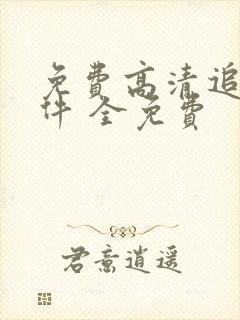 免费高清追
件 全免费
君意逍遥